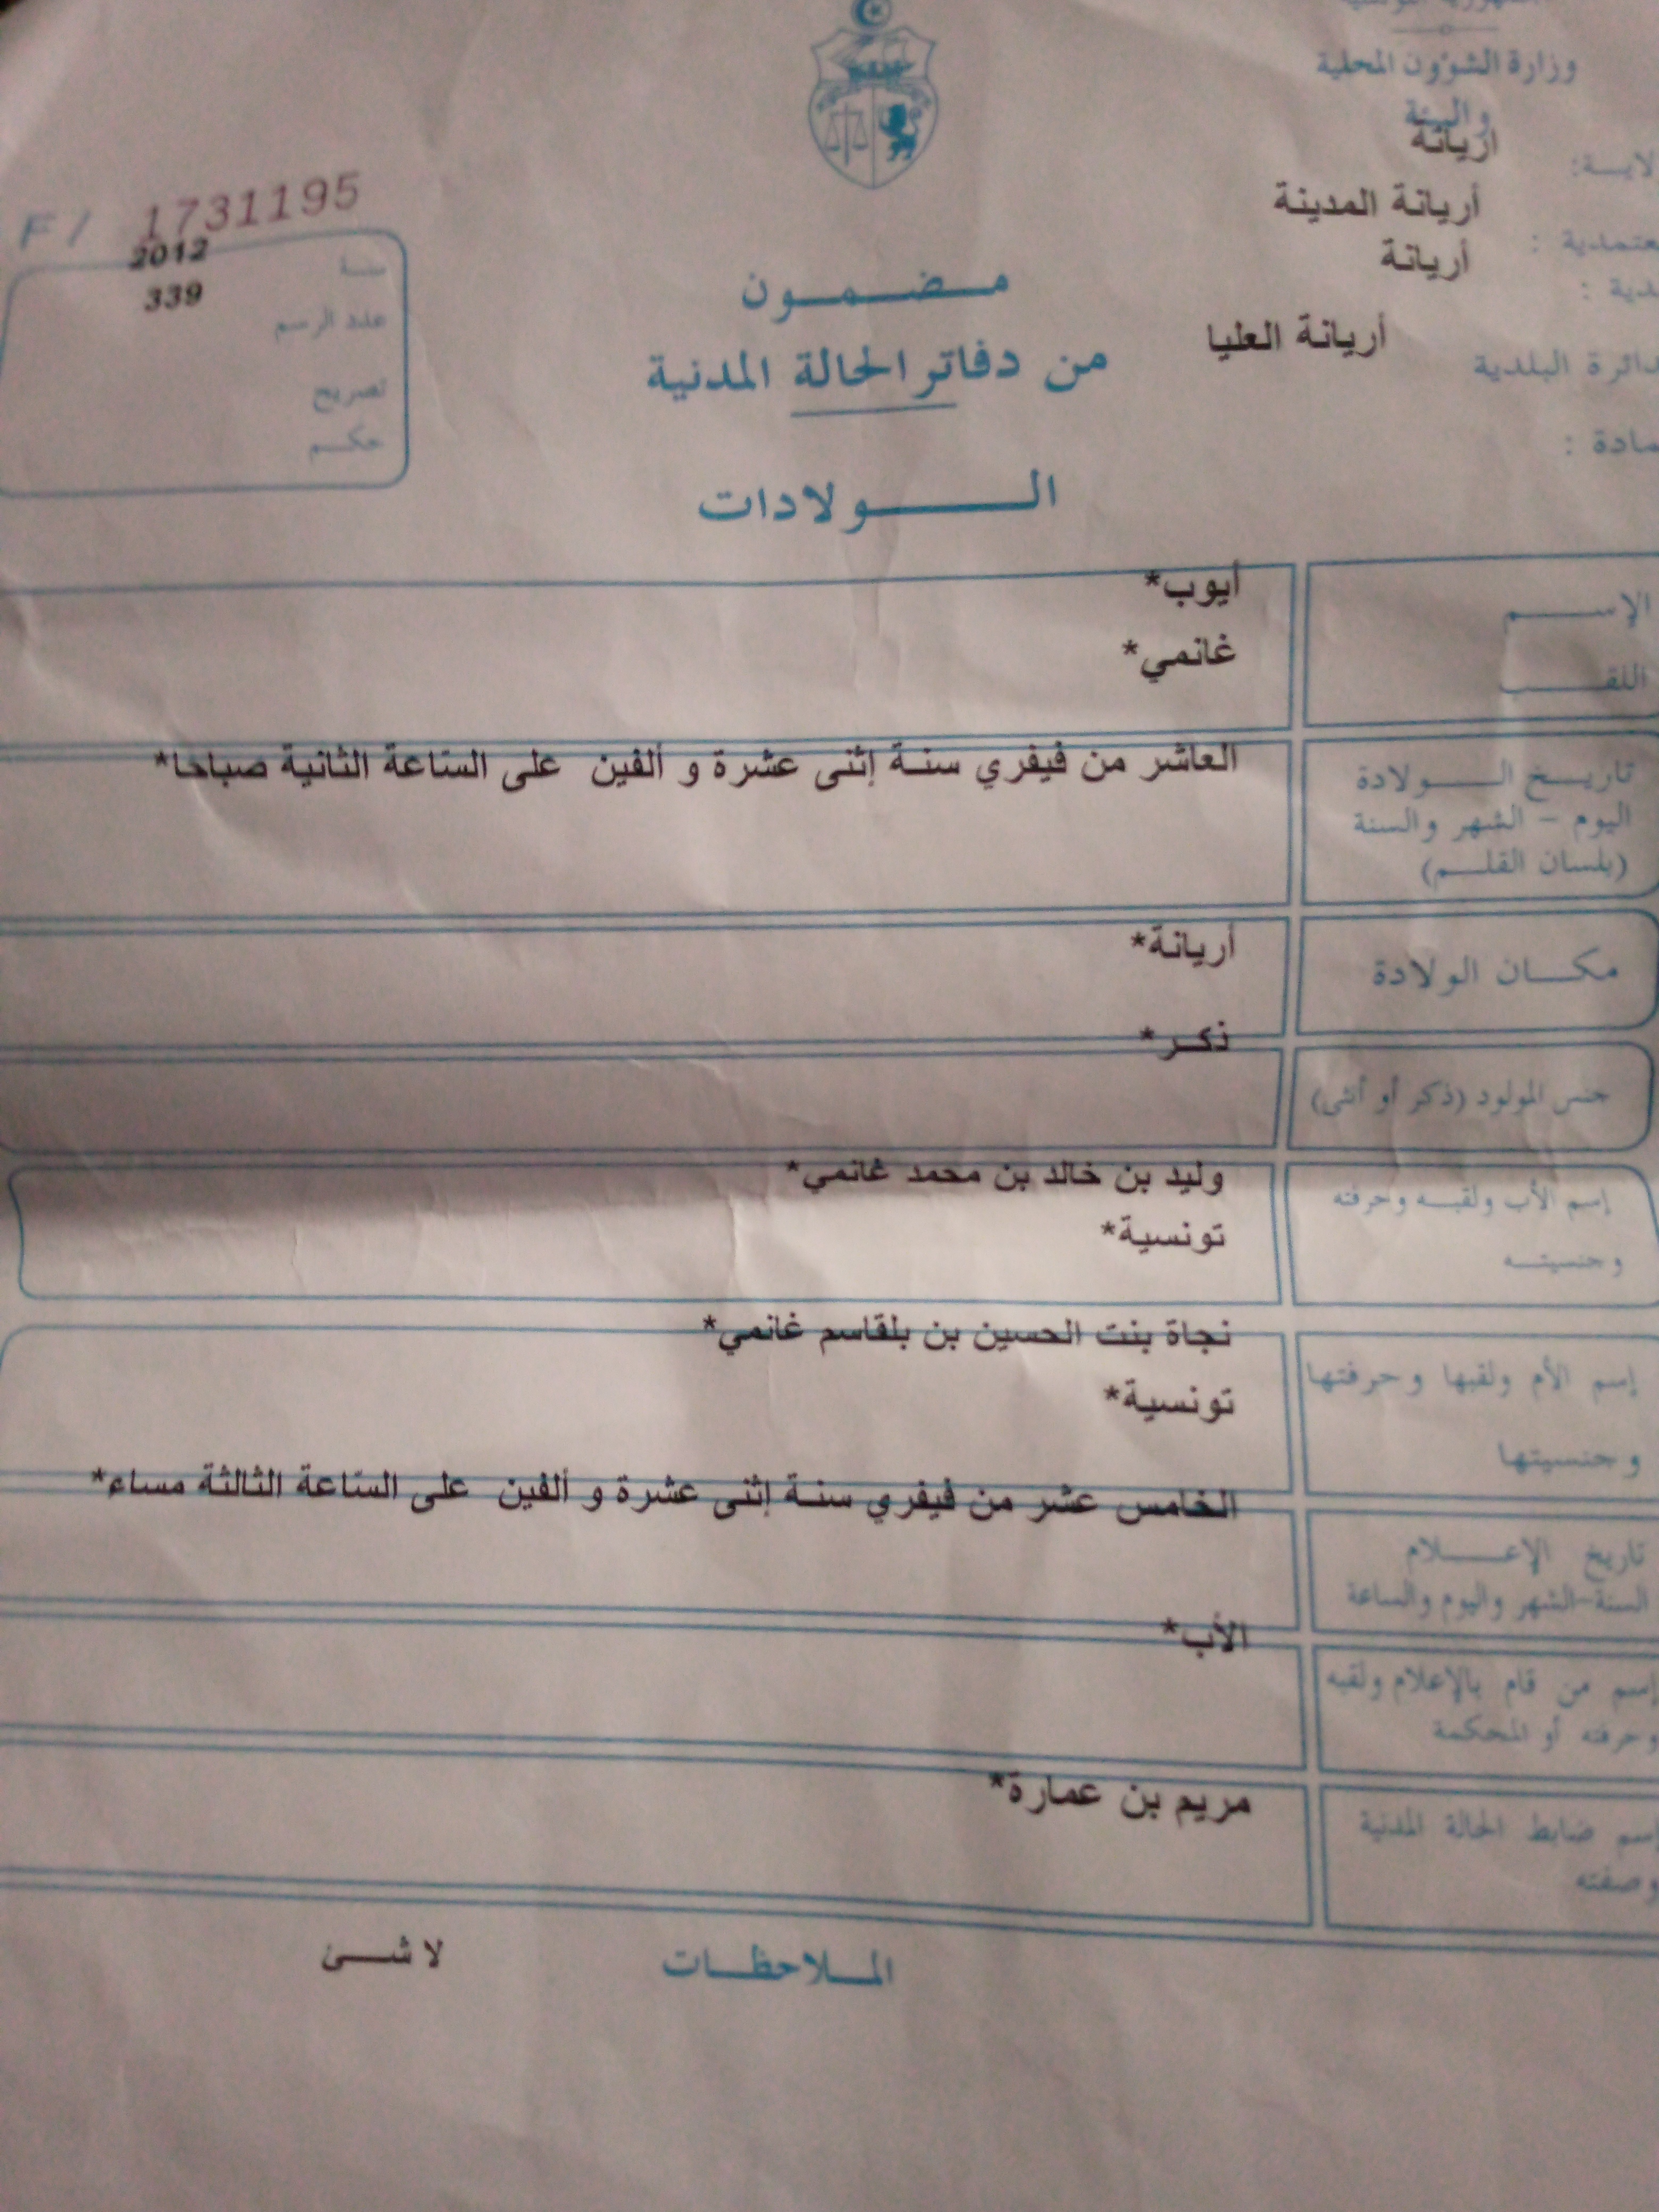 وزارة الشؤون المحلية
والبيئة
أريانة
أريانة المدينة
أريانة
دائرة البلدية أريانة العليا
F / 1731195
سنة 2012
عدد الرسم 339
تصريح
حكم
مضمون
من دفاتر الحالة المدنية
الولادات
الإسم أيوب*
اللقب غانمي*
تاريخ الولادة العاشر من فيفري سنة إثنى عشرة و ألفين على الساعة الثانية صباحا*
اليوم - الشهر والسنة
(بلسان القلم)
مكان الولادة أريانة*
ذكر*
جنس المولود (ذكر أو أنثى)
إسم الأب ولقبه وحرفته وليد بن خالد بن محمد غانمي*
وجنسيته تونسية*
نجاة بنت الحسين بن بلقاسم غانمي*
إسم الأم ولقبها وحرفتها
تونسية*
وجنسيتها
الخامس عشر من فيفري سنة إثنى عشرة و ألفين على الساعة الثالثة مساء*
تاريخ الإعلام
السنة-الشهر واليوم والساعة
الأب*
إسم من قام بالإعلام ولقبه
وحرفته أو المحكمة
مريم بن عمارة*
إسم ضابط الحالة المدنية
وصفته
الملاحظات لا شئ